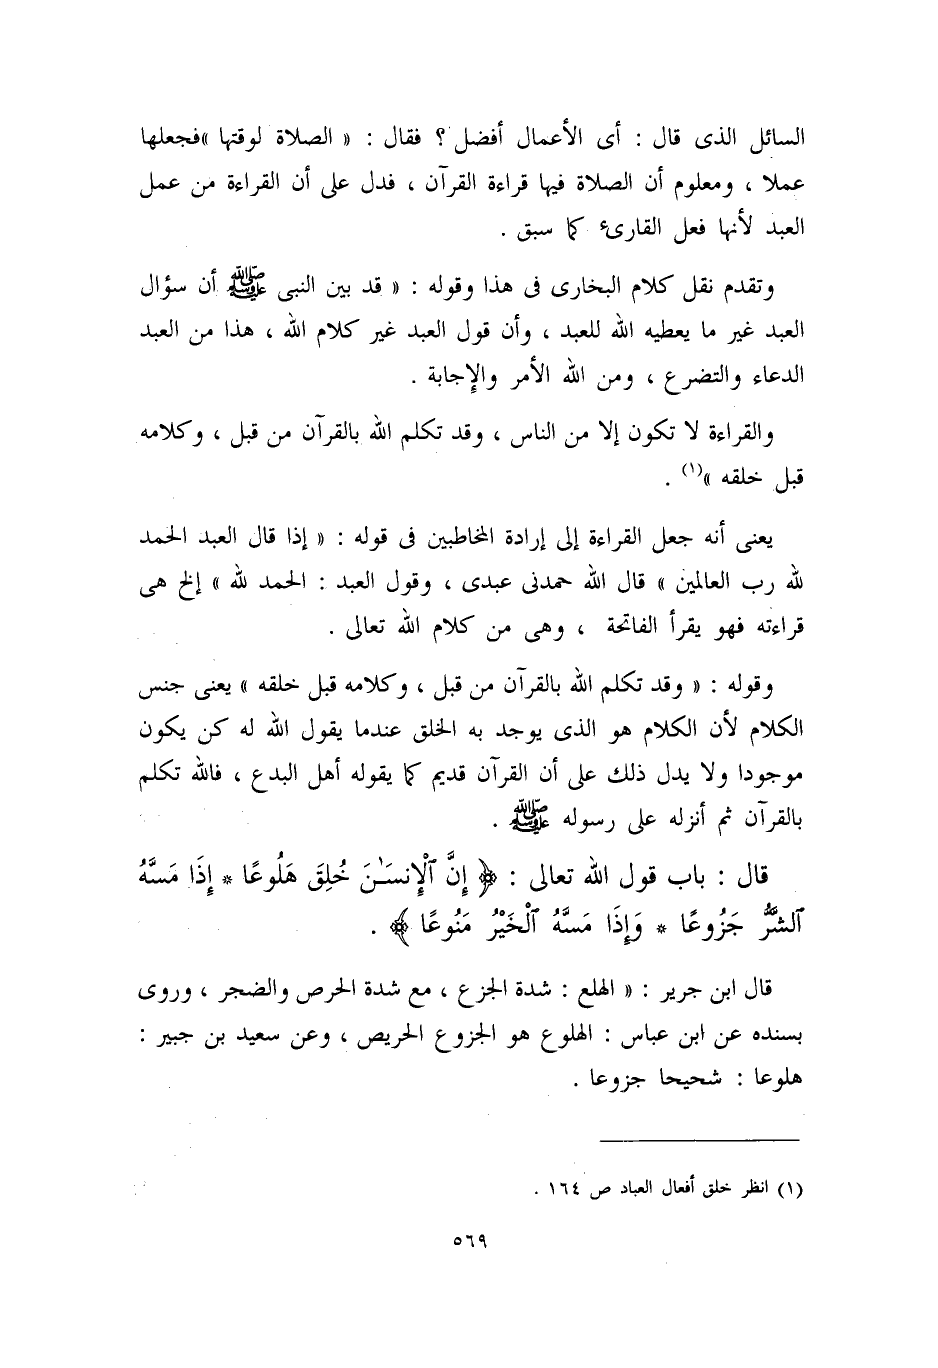 السائل الذى قال : أى الأعمال أفضل ؟ فقال : « الصلاة لوقتها »فجعلها
عملا ، ومعلوم أن الصلاة فيها قراءة القرآن ، فدل على أن القراءة من عمل
العبد لأنها فعل القارىء كما سبق .
وتقدم نقل كلام البخارى فى هذا وقوله : « قد بين النبى ﷺ أن سؤال
العبد غير ما يعطيه الله للعبد ، وأن قول العبد غير كلام الله ، هذا من العبد
الدعاء والتضرع ، ومن الله الأمر والإجابة .
والقراءة لا تكون إلا من الناس ، وقد تكلم الله بالقرآن من قبل ، وكلامه
قبل خلقه »(١) .
يعنى أنه جعل القراءة إلى إرادة المخاطبين فى قوله : « إذا قال العبد الحمد
لله رب العالمين » قال الله حمدنى عبدى ، وقول العبد : الحمد لله » إلخ هى
قراءته فهو يقرأ الفاتحة ، وهى من كلام الله تعالى .
وقوله : « وقد تكلم الله بالقرآن من قبل ، وكلامه قبل خلقه » يعنى جنس
الكلام لأن الكلام هو الذى يوجد به الخلق عندما يقول الله له كن يكون
موجودا ولا يدل ذلك على أن القرآن قديم كما يقوله أهل البدع ، فالله تكلم
بالقرآن ثم أنزله على رسوله ﷺ .
قال : باب قول الله تعالى : ﴿ إِنَّ ٱلْإِنسَـٰنَ خُلِقَ هَلُوعًا * إِذَا مَسَّهُ
ٱلشَّرُّ جَزُوعًا * وَإِذَا مَسَّهُ ٱلْخَيْرُ مَنُوعًا ﴾ .
قال ابن جرير : « الهلع : شدة الجزع ، مع شدة الحرص والضجر ، وروى
بسنده عن ابن عباس : الهلوع هو الجزوع الحريص ، وعن سعيد بن جبير :
هلوعا : شحيحا جزوعا .
(١) انظر خلق أفعال العباد ص ١٦٤ .
٥٦٩